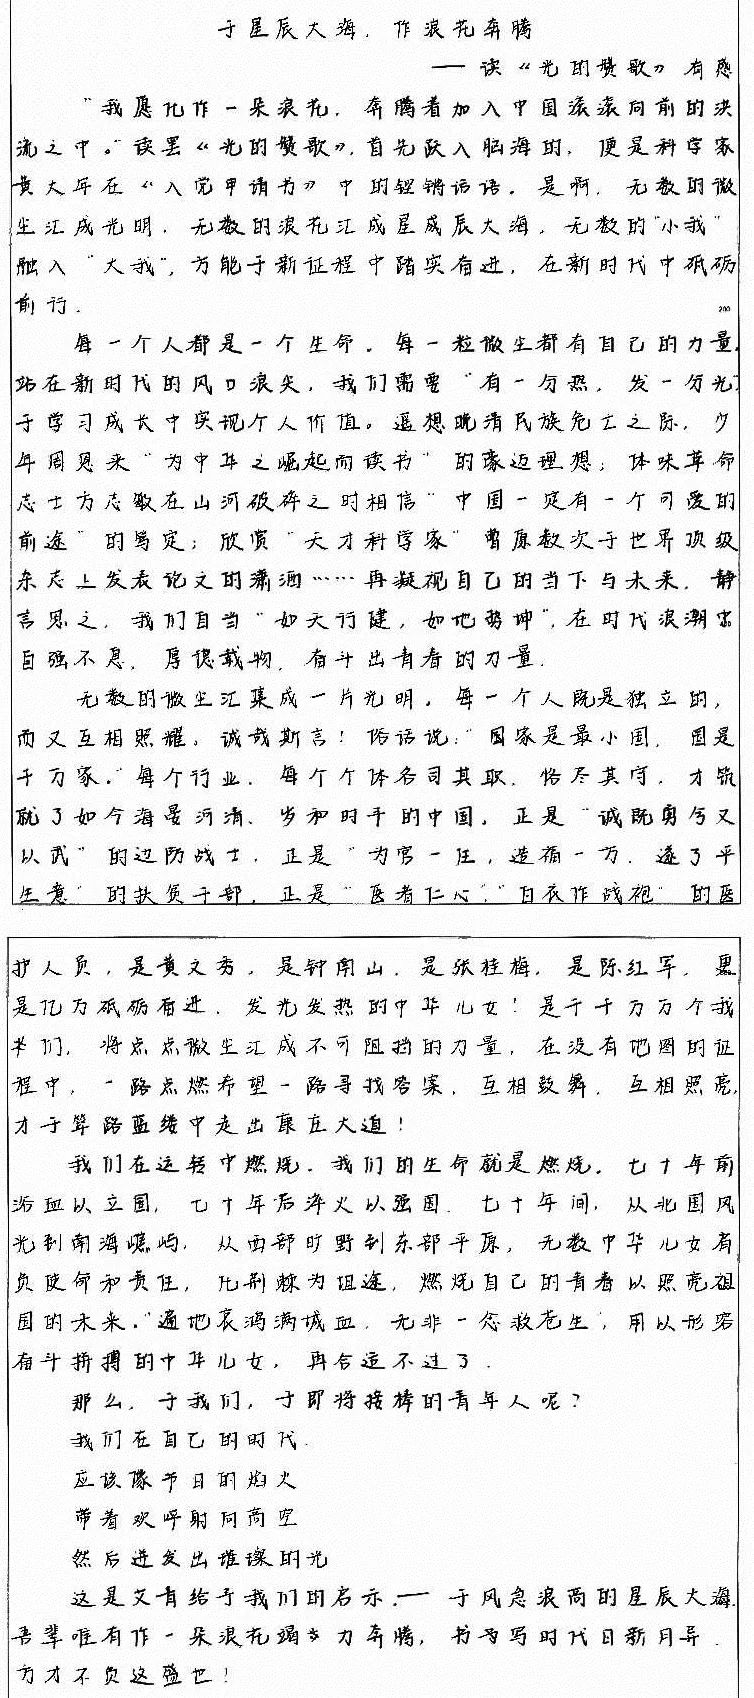 于星辰大海，作浪花奔腾
——读《光的赞歌》有感
“我愿化作一朵浪花，奔腾着加入中国滚滚向前的洪
流之中。”读罢《光的赞歌》，首先跃入脑海的，便是科学家
黄大年在《入党申请书》中的铿锵话语。是啊，无数的微
尘汇成光明，无数的浪花汇成星成辰大海，无数的“小我”
融入“大我”，方能于新征程中踏实奋进，在新时代中砥砺
前行。
200
每一个人都是一个生命。每一粒微尘都有自己的力量，
站在新时代的风口浪尖，我们需要“有一分热，发一分光”
于学习成长中实现个人价值。遥想晚清民族危亡之际，少
年周恩来“为中华之崛起而读书”的豪迈理想；体味革命
志士方志敏在山河破碎之时相信“中国一定有一个可爱的
前途”的笃定；欣赏“天才科学家”曹原数次于世界顶级
杂志上发表论文的潇洒……再凝视自己的当下与未来，静
言思之，我们自当“如天行健，如地势坤”，在时代浪潮
自强不息，厚德载物，奋斗出青春的力量。
无数的微尘汇集成一片光明。每一个人既是独立的，
而又互相照耀。诚哉斯言！俗话说：“国家是最小国，国是
千万家。”每个行业、每个个体各司其职，恪尽其守，才铸
就了如今海晏河清、岁和时丰的中国。正是“诚既勇兮又
以武”的边防战士，正是“为官一任，造福一方，遂了平
生意”的扶贫干部，正是“医者仁心”，“白衣作战袍”的医
护人员，是黄文秀，是钟南山，是张桂梅，是陈红军，更
是亿万砥砺奋进、发光发热的中华儿女！是千千万万个我
们，将点点微尘汇成不可阻挡的力量，在没有地图的征
程中，一路点燃希望一路寻找答案，互相鼓舞，互相照亮，
才于筚路蓝缕中走出康庄大道！
我们在运转中燃烧，我们的生命就是燃烧。七十年前
浴血以立国，七十年后淬火以强国。七十年间，从北国风
光到南海礁屿，从西部旷野到东部平原，无数中华儿女肩
负使命和责任，化荆棘为坦途，燃烧自己的青春以照亮祖
国的未来。“遍地哀鸿满城血，无非一念救苍生”，用以形容
奋斗拼搏的中华儿女，再合适不过了。
那么，于我们，于即将接棒的青年人呢？
我们在自己的时代
应该像节日的焰火
带着欢呼射向高空
然后迸发出璀璨的光
这是艾青给予我们的启示。——于风急浪高的星辰大海
吾辈唯有作一朵浪花竭力奔腾，书写时代日新月异，
方才不负这盛世！